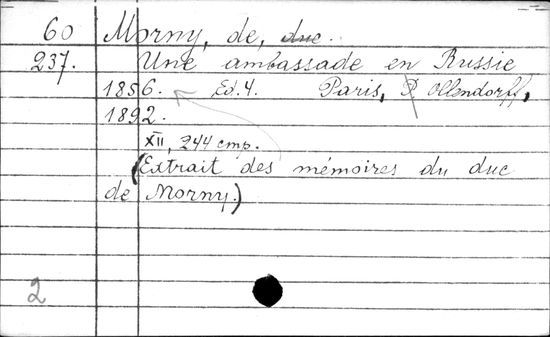 60 Morny, de, duc.
237. Une ambassade en Russie
1856. Ed. 4. Paris, P Ollendorff,
1892.
XII, 244 стр.
(Extrait des mémoires du duc
de Morny.)
2